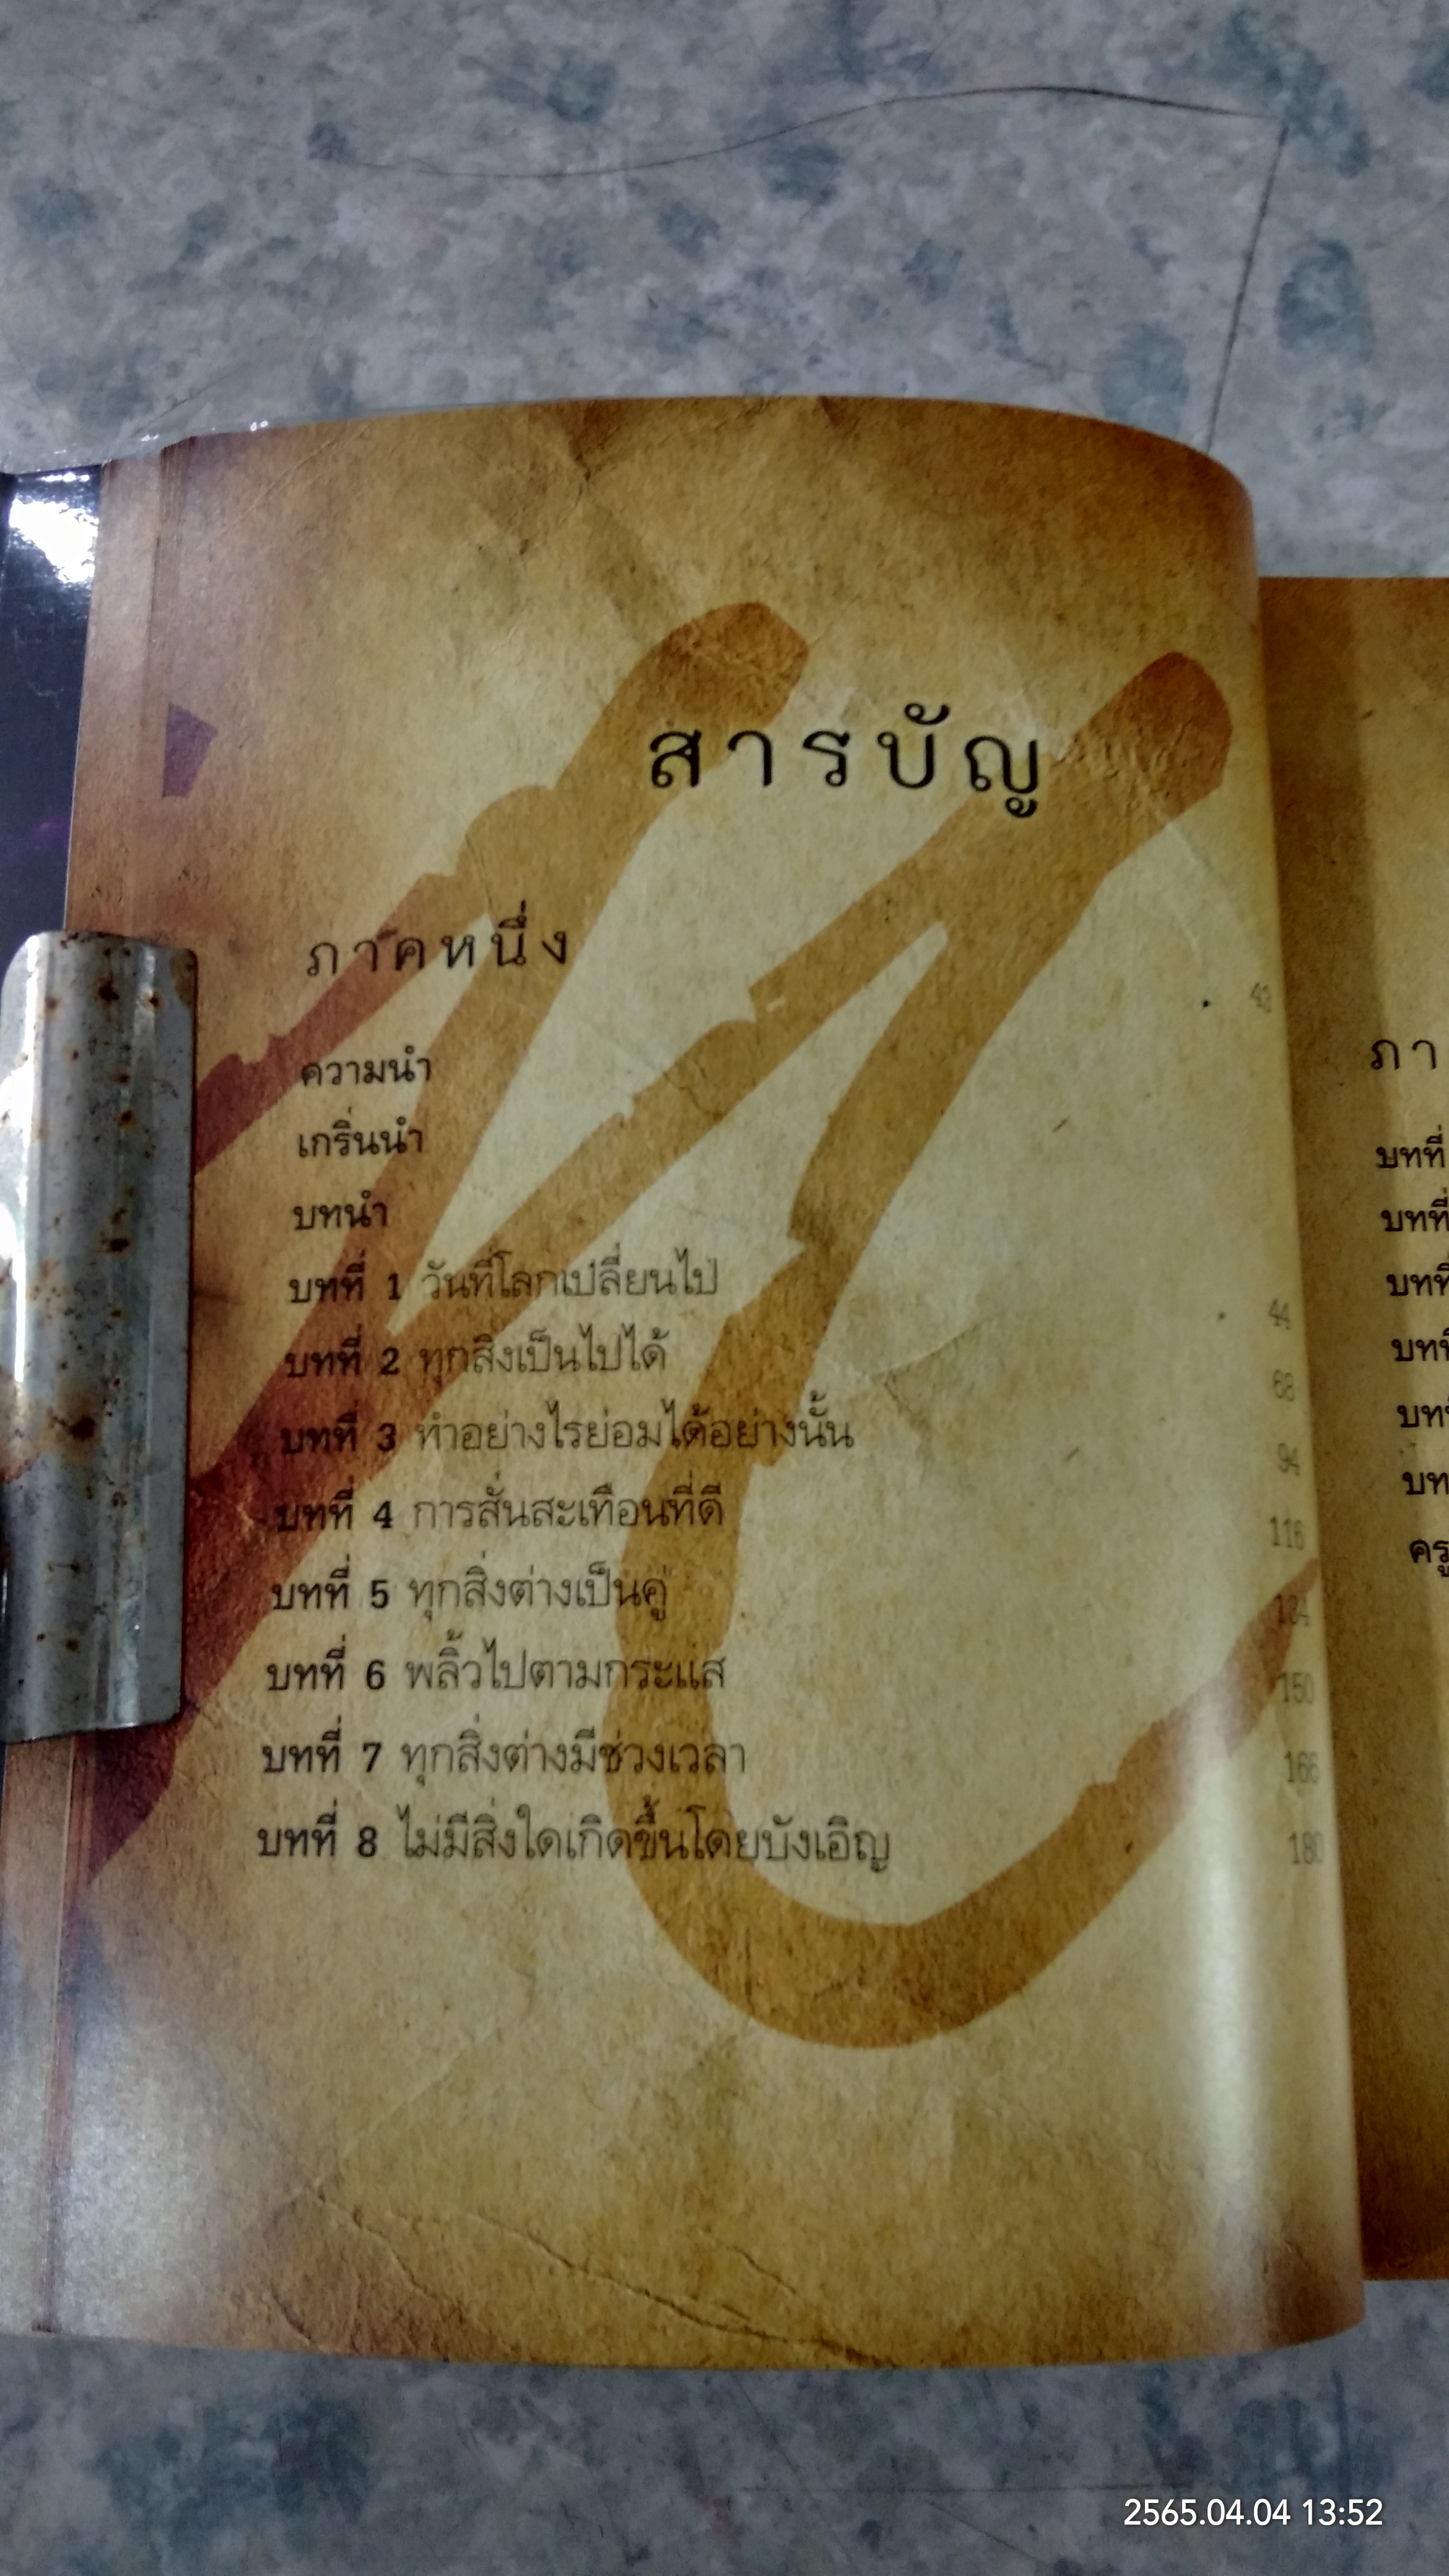 สารบัญ
ภาคหนึ่ง
43
ความนำ
เกริ่นนำ
บทนำ
บทที่ 1 วันที่โลกเปลี่ยนไป 44
บทที่ 2 ทุกสิ่งเป็นไปได้ 68
บทที่ 3 ทำอย่างไรย่อมได้อย่างนั้น 94
บทที่ 4 การสั่นสะเทือนที่ดี 116
บทที่ 5 ทุกสิ่งต่างเป็นคู่ 134
บทที่ 6 พลิ้วไปตามกระแส 150
บทที่ 7 ทุกสิ่งต่างมีช่วงเวลา 166
บทที่ 8 ไม่มีสิ่งใดเกิดขึ้นโดยบังเอิญ 180
ภา
บทที่
บทที่
บทที่
บทที่
บทที่
บท
ครู
2565.04.04 13:52